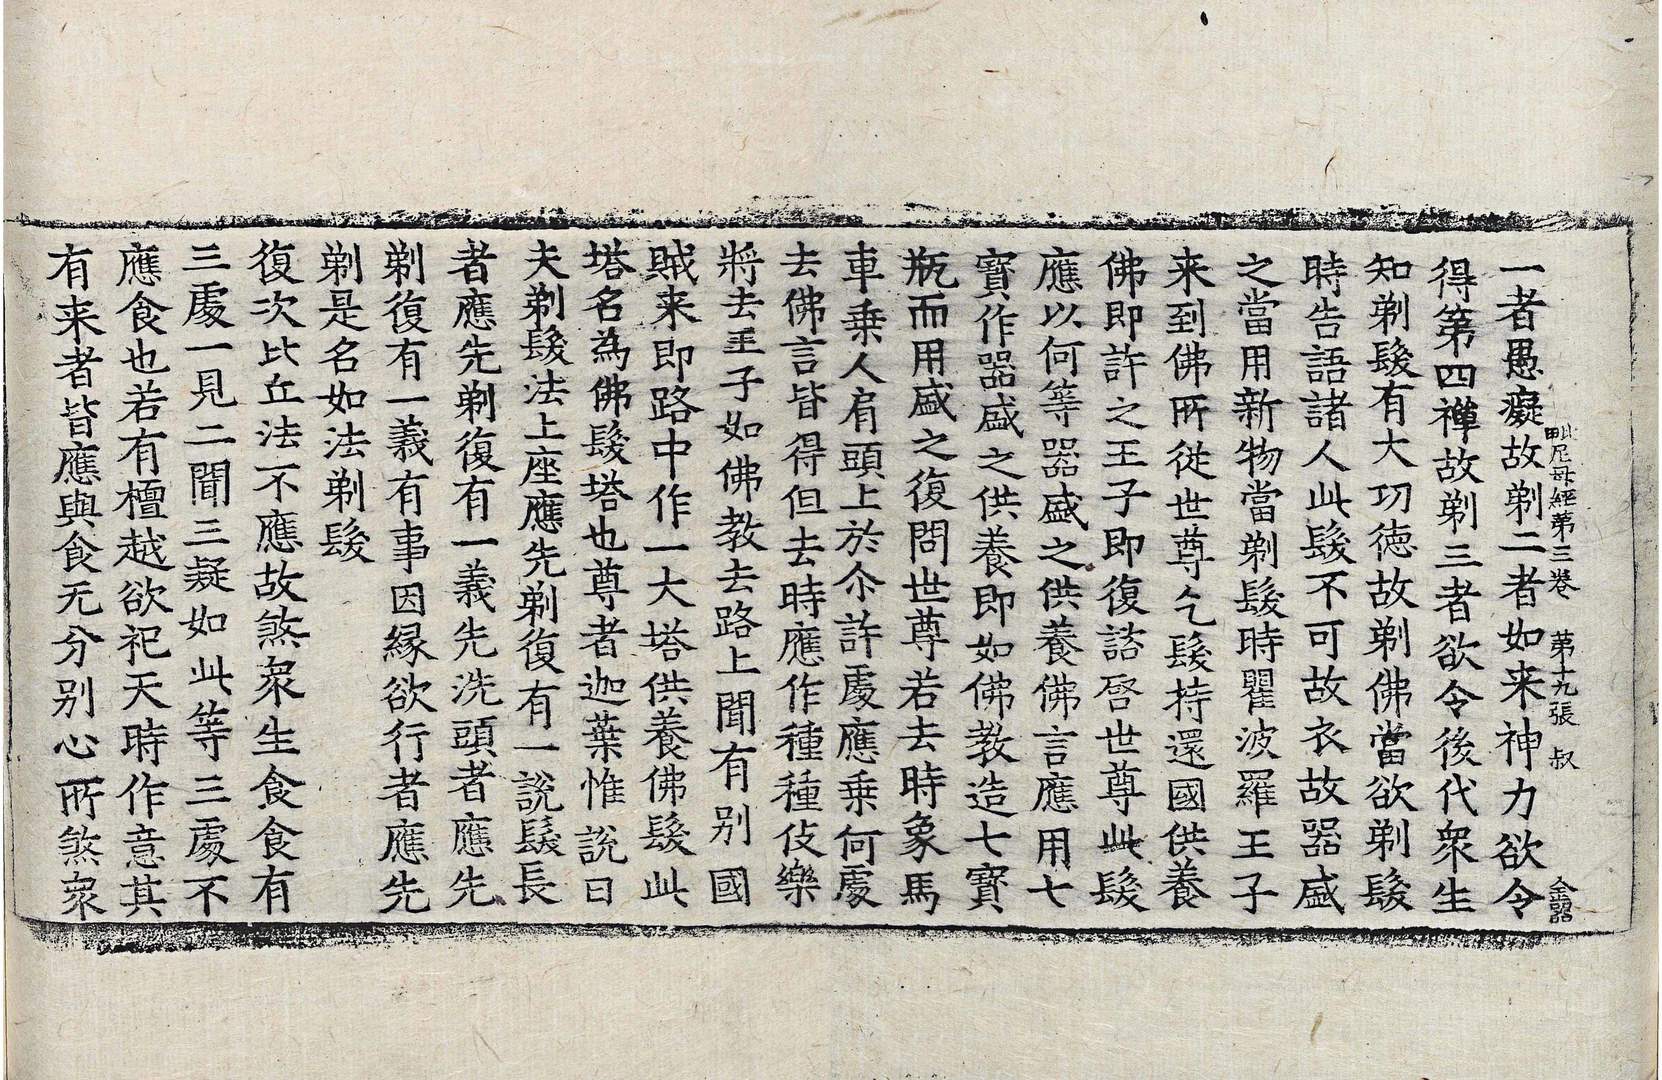 毗尼母經第三卷 第十九張 叔
一者愚癡故剃二者如来神力欲令
得第四禅故剃三者欲令後代衆生
知剃髮有大功德故剃佛當欲剃髮
時告語諸人此髮不可故衣故器盛
之當用新物當剃髮時瞿波羅王子
来到佛所従世尊乞髮持還國供養
佛即許之王子即復諮啓世尊此髮
應以何等器盛之供養佛言應用七
寳作器盛之供養即如佛教造七寳
瓶而用盛之復問世尊若去時象馬
車乗人肩頭上於尒許處應乗何處
去佛言皆得但去時應作種種伎樂
將去王子如佛教去路上聞有别國
賊来即路中作一大塔供養佛髮此
塔名為佛髮塔也尊者迦葉惟說曰
夫剃髮法上座應先剃復有一說鬚長
者應先剃復有一義先洗頭者應先
剃復有一義有事因縁欲行者應先
剃是名如法剃髮
復次比丘法不應故煞衆生食食有
三處一見二聞三疑如此等三處不
應食也若有檀越欲祀天時作意其
有来者皆應與食无分别心所煞衆